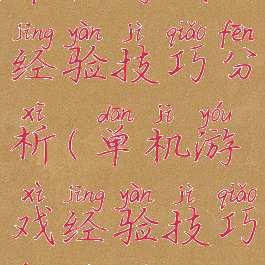 jīng yàn jì qiǎo fēn
经验技巧分
xī dān jī yóu
析(单机游
xì jīng yàn jì qiǎo
戏经验技巧